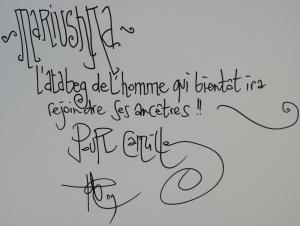 ~Mariushka~
l'atabeg de l'homme qui bientôt ira
rejoindre ses ancêtres !!
Pour Camille